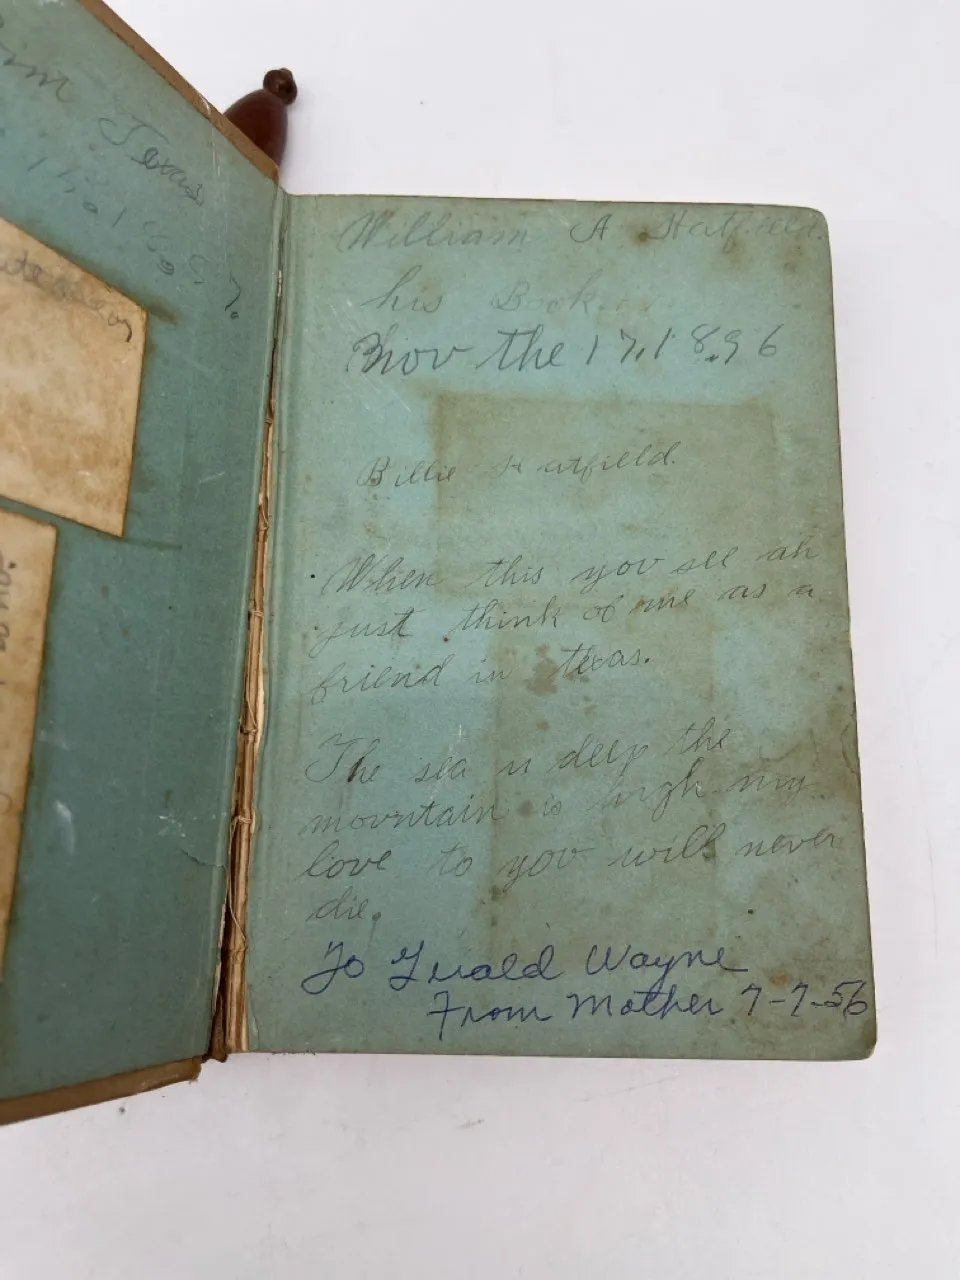 Texas
William A Hatfield.
his Book.
Nov the 17, 1896
Billie Hatfield.
When this you see ah
just think of me as a
friend in texas.
The sea is deep the
mountain is high my
love to you will never
die.
To Gerald Wayne
From Mother 7-7-56